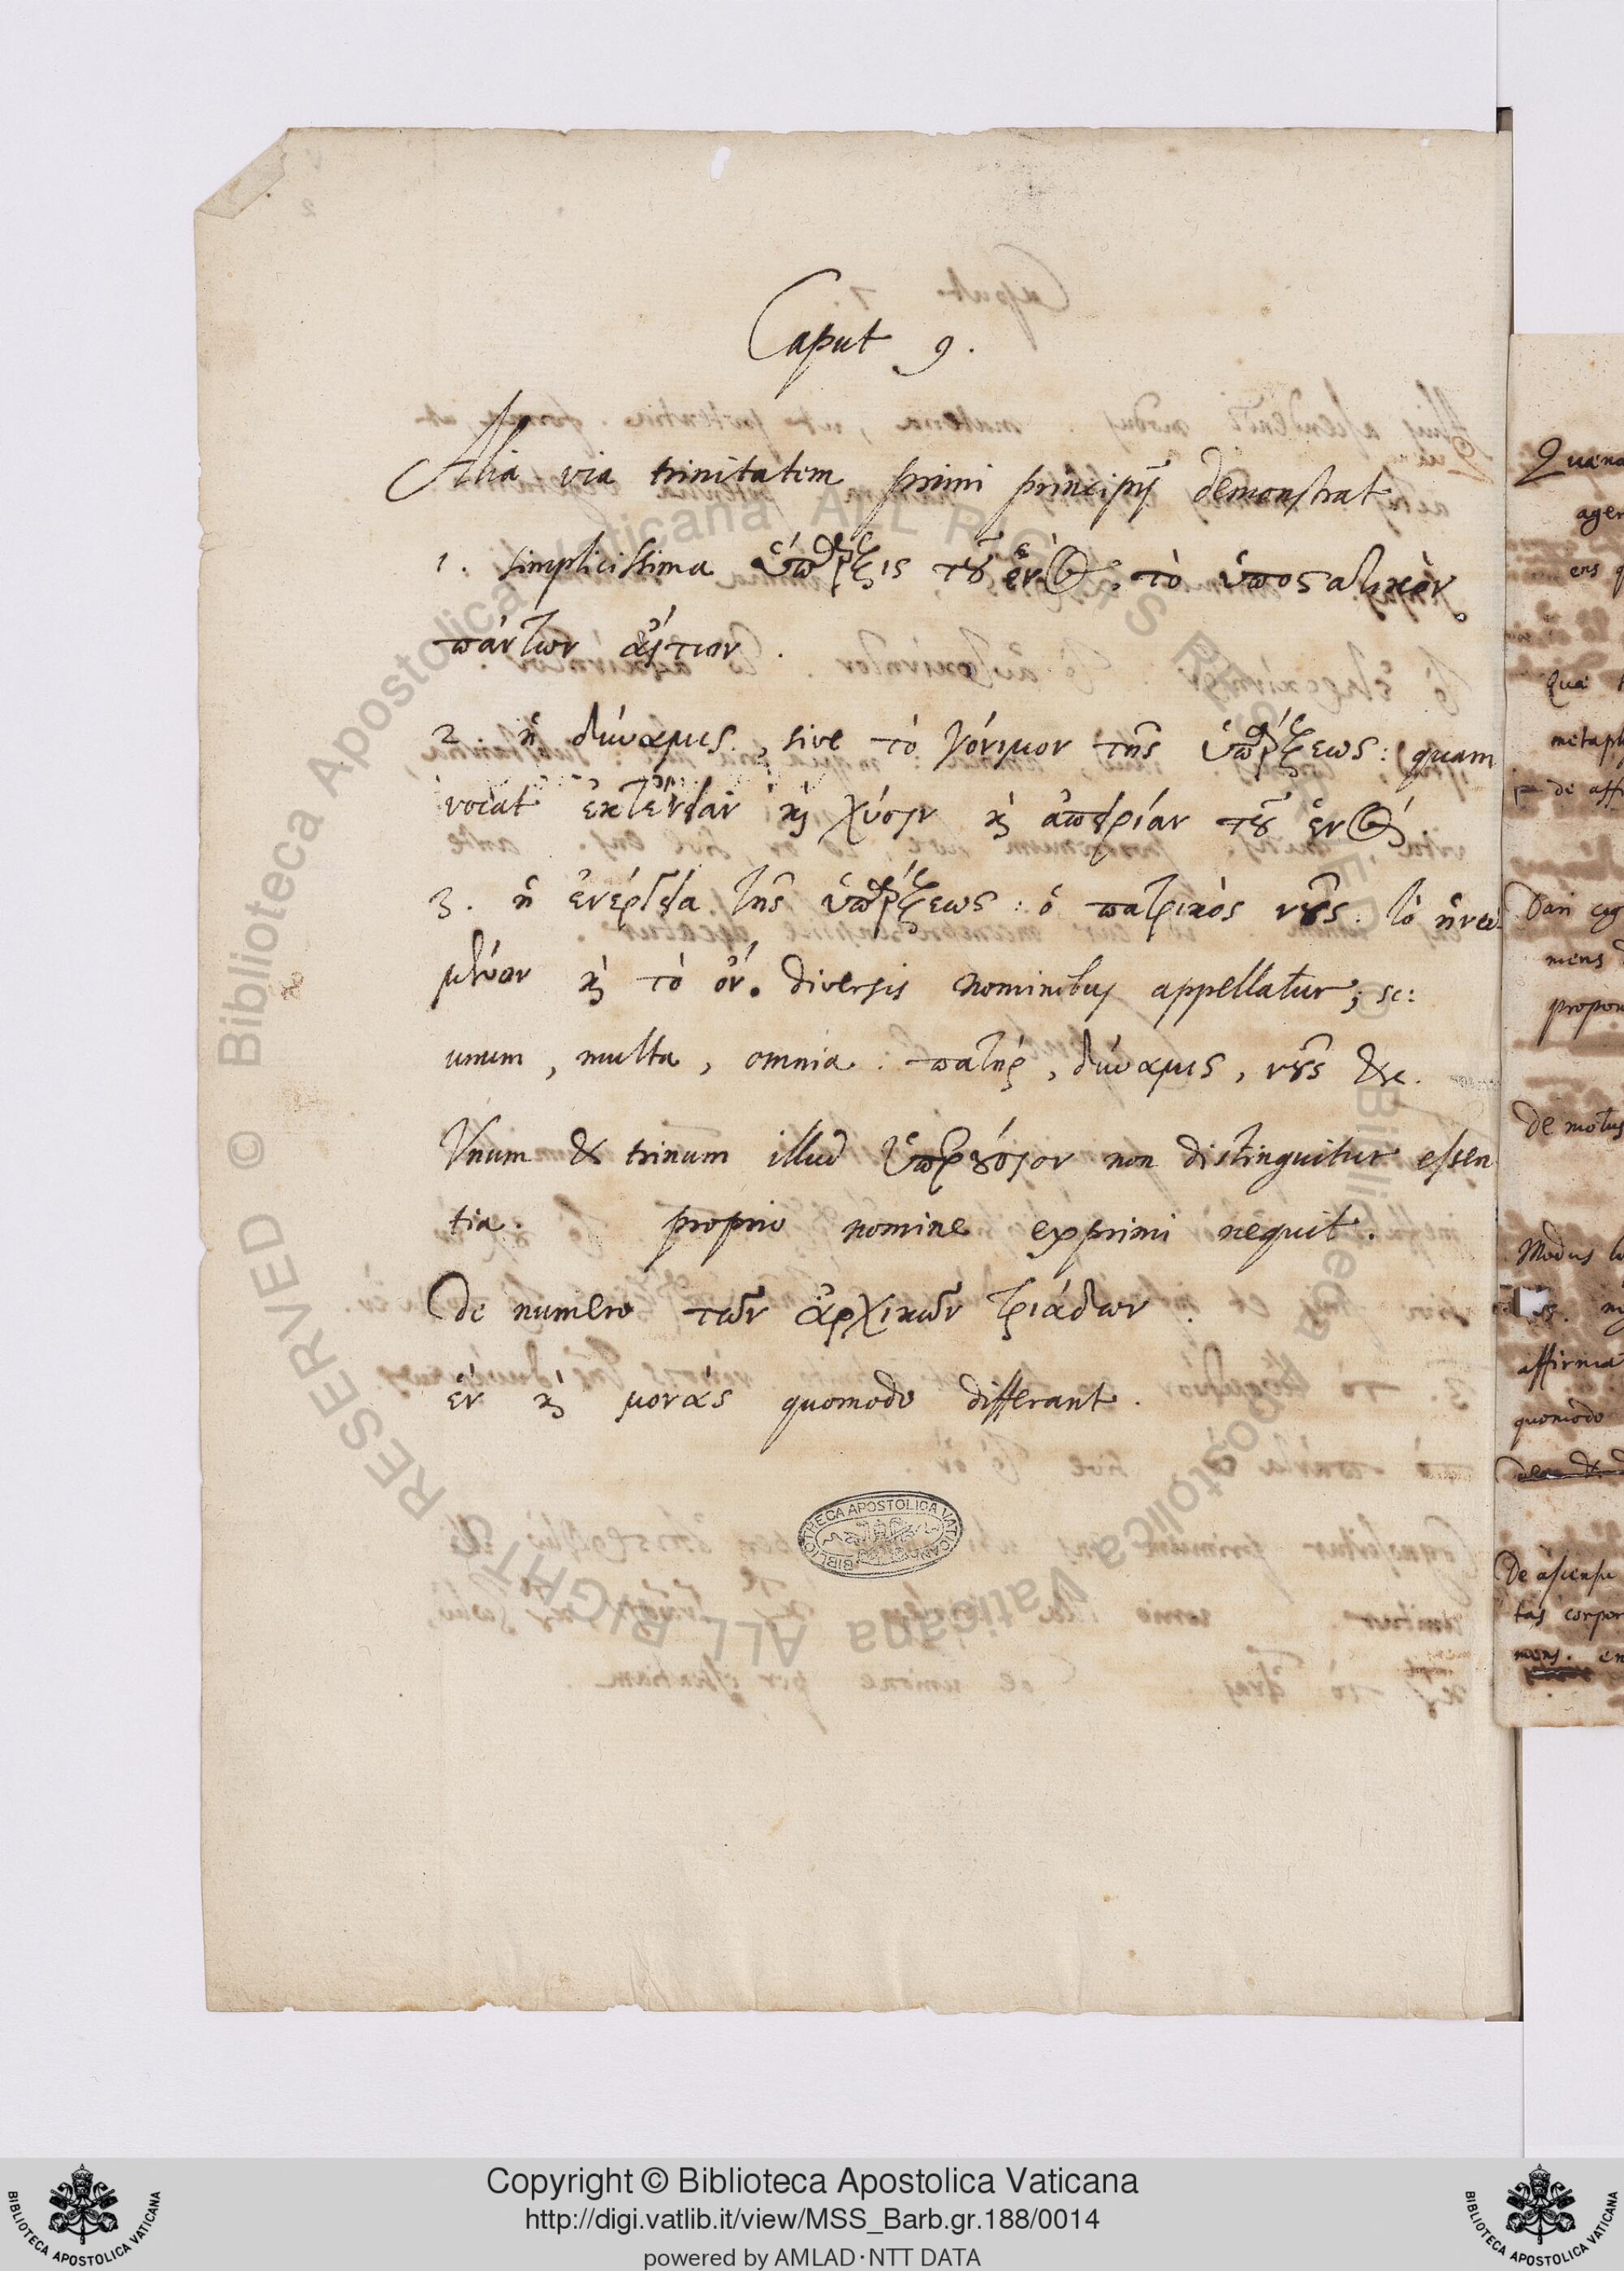 Caput 9.
Alia via trinitatem primi principij demonstrat
1. simplicissima ὕπαρξις τοῦ ἑνὸς, τὸ ὑποστατικὸν
πάντων αἴτιον.
2 ἡ δύναμις, sive τὸ γόνιμον τῆς ὑπάρξεως: quam
vocat ἐκτένειαν καὶ χύσιν καὶ ἀπειρίαν τοῦ ἑνός
3. ἡ ἐνέργεια τῆς ὑπάρξεως: ὁ πατρικὸς νοῦς. τὸ ἡνω
μένον καὶ τὸ ὄν. diversis nominibus appellatur; sc:
unum, multa, omnia. πατήρ, δύναμις, νοῦς &c.
Vnum & trinum illud ὑπερούσιον non distinguitur essen
tia. proprio nomine exprimi nequit.
De numero τῶν ἀρχικῶν τριάδων.
ἓν καὶ μονὰς quomodo differant.
BIBLIOTHECA APOSTOLICA VATICANA
Quand
agen
ens q
Quae
metaph
de affe
Dari cog
mens
propon
De motus
Modus
affirmat
quomodo
De ascensu
tas corpor
mens. en
© Biblioteca Apostolica Vaticana ALL RIGHTS RESERVED
© Biblioteca Apostolica Vaticana ALL RIGHTS RESERVED
Copyright © Biblioteca Apostolica Vaticana
http://digi.vatlib.it/view/MSS_Barb.gr.188/0014
powered by AMLAD·NTT DATA
BIBLIOTECA APOSTOLICA VATICANA
BIBLIOTECA APOSTOLICA VATICANA